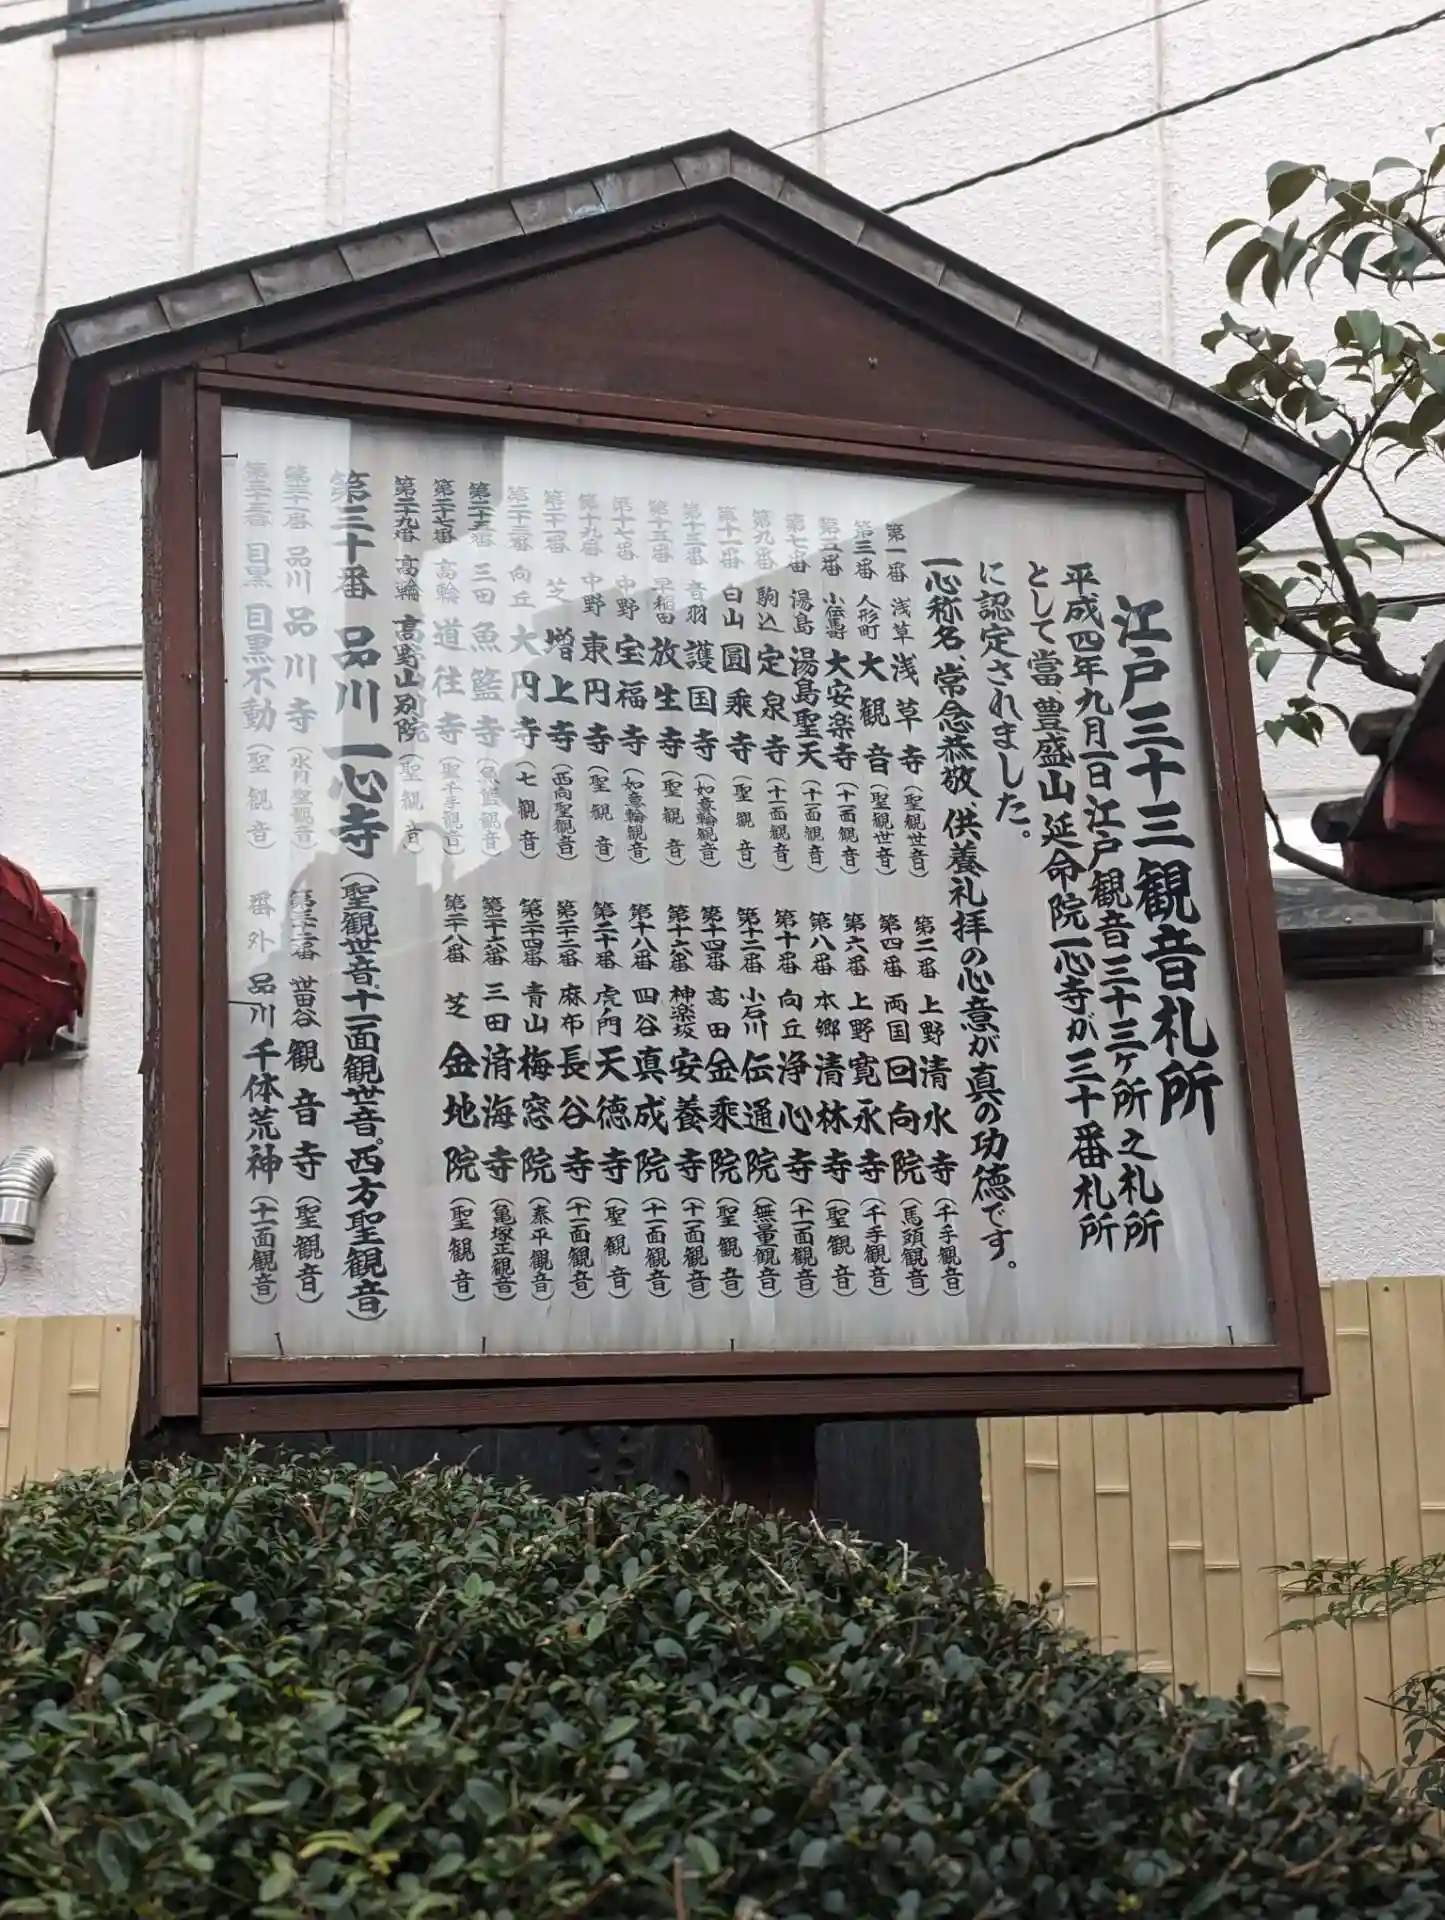 江戸三十三観音札所
平成四年九月一日江戸観音三十三ヶ所之札所
として當、豊盛山延命院一心寺が三十番札所
に認定されました。
一心称名、常念恭敬、供養礼拝の心意が真の功徳です。
第一番 浅草 浅草寺(聖観世音)
第二番 上野 清水寺(千手観音)
第三番 人形町 大観音(聖観世音)
第四番 両国 回向院(馬頭観音)
第五番 小伝馬町 大安楽寺(十一面観音)
第六番 上野 寛永寺(千手観音)
第七番 湯島 湯島聖天(十一面観音)
第八番 本郷 清林寺(聖観音)
第九番 駒込 定泉寺(十一面観音)
第十番 向丘 浄心寺(十一面観音)
第十一番 白山 圓乘寺(聖観音)
第十二番 小石川 伝通院(無量観音)
第十三番 音羽 護国寺(如意輪観音)
第十四番 高田 金乗院(聖観音)
第十五番 早稲田 放生寺(聖観音)
第十六番 神楽坂 安養寺(十一面観音)
第十七番 中野 宝福寺(如意輪観音)
第十八番 四谷 真成院(十一面観音)
第十九番 中野 東円寺(聖観音)
第二十番 虎ノ門 天徳寺(聖観音)
第二十一番 芝 増上寺(西向聖観音)
第二十二番 麻布 長谷寺(十一面観音)
第二十三番 向丘 大円寺(七観音)
第二十四番 青山 梅窓院(泰平観音)
第二十五番 三田 魚籃寺(魚籃観音)
第二十六番 三田 済海寺(亀塚正観音)
第二十七番 高輪 道往寺(聖千手観音)
第二十八番 芝 金地院(聖観音)
第二十九番 高輪 高野山別院(聖観音)
第三十番 品川 一心寺(聖観世音.十一面観世音。西方聖観音)
第三十一番 品川 品川寺(水月聖観音)
第三十二番 世田谷 観音寺(聖観音)
第三十三番 目黒 目黒不動(聖観音)
番外 品川 千体荒神(十一面観音)